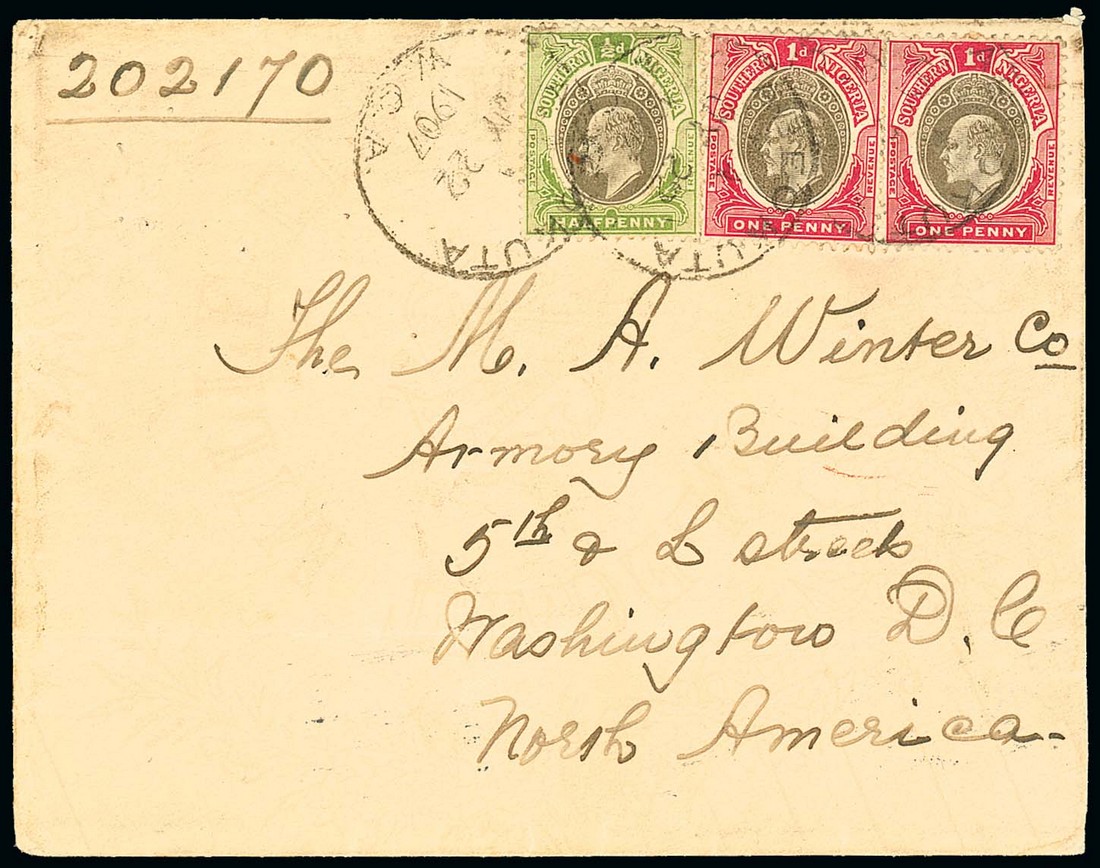 202170
½d
SOUTHERN NIGERIA
POSTAGE
REVENUE
HALFPENNY
1d
SOUTHERN NIGERIA
POSTAGE
REVENUE
ONE PENNY
1d
SOUTHERN NIGERIA
POSTAGE
REVENUE
ONE PENNY
22
1907
W.C.A
The M. A. Winter Co
Armory Building
5th & L streets
Washington D. C
North America